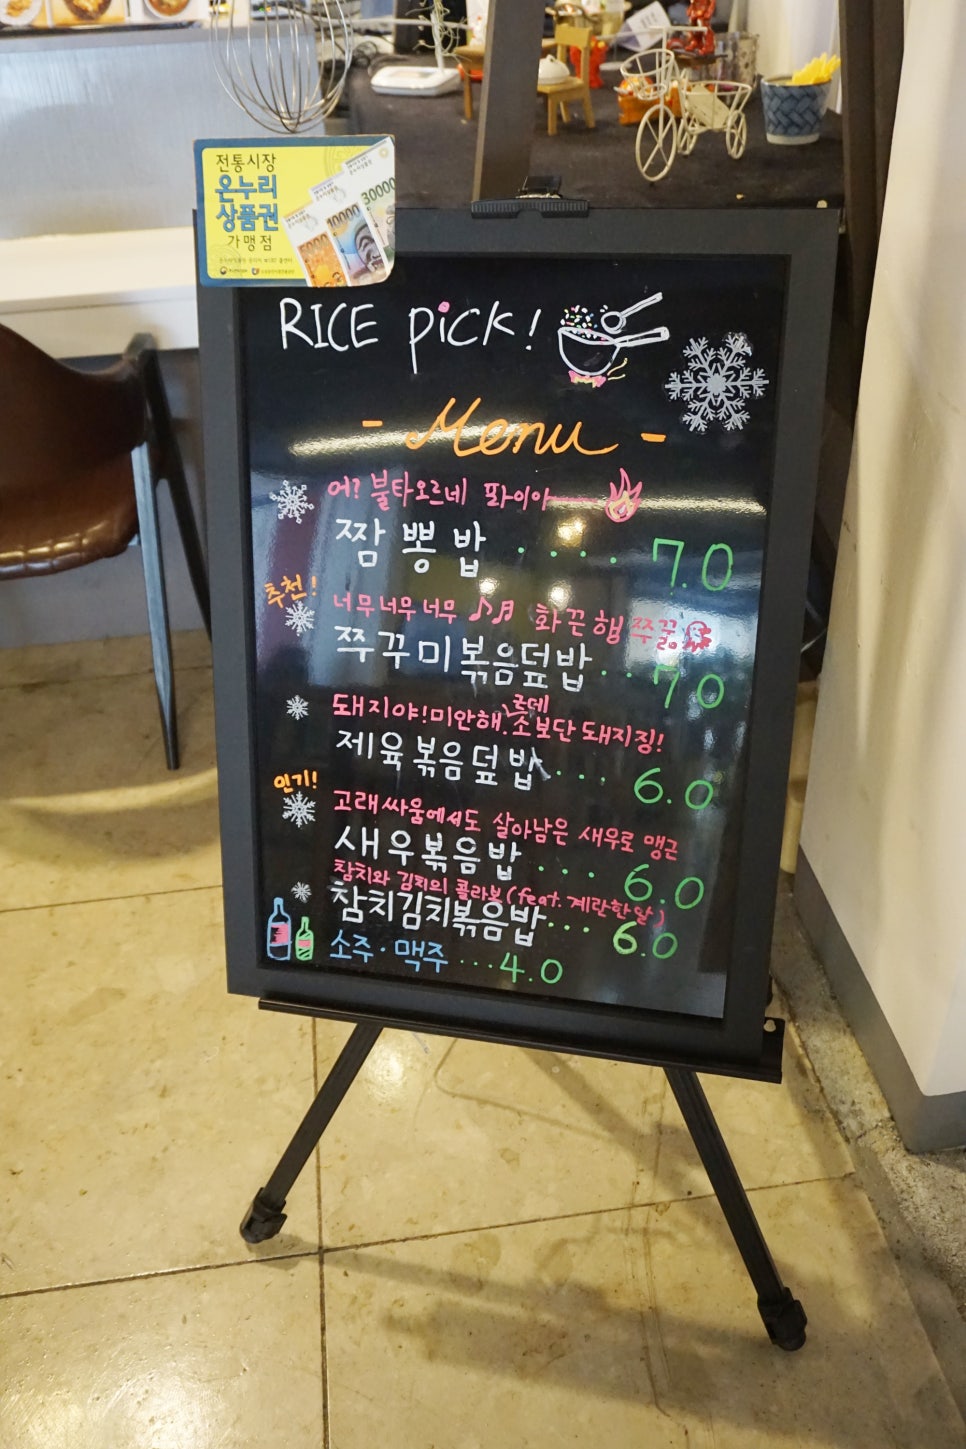 전통시장
온누리
상품권
가맹점
5000
10000
30000
RICE pick!
- Menu -
어? 불타오르네 파이야
짬뽕밥 ····· 7.0
추천!
너무너무너무 ♪♬ 화끈행 쭈꿀
쭈꾸미볶음덮밥 ··· 7.0
돼지야! 미안해. 근데 소보단 돼지징!
제육볶음덮밥 ···· 6.0
인기!
고래싸움에서도 살아남은 새우로 맹근
새우볶음밥 ···· 6.0
참치와 김치의 콜라보 (feat. 계란한알)
참치김치볶음밥 ··· 6.0
소주·맥주 ···4.0